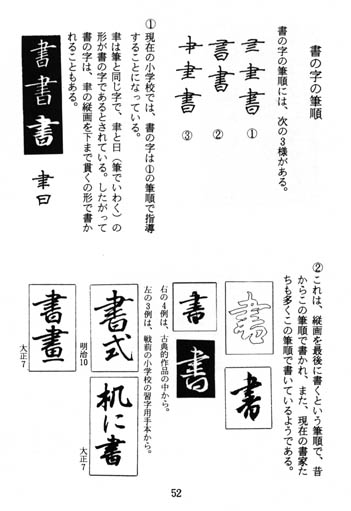 書の字の筆順
書の字の筆順には、次の3様がある。
①
②
③
①現在の小学校では、書の字は①の筆順で指導
することになっている。
聿は筆と同じ字で、聿と曰（筆でいわく）の
形が書の字であるとされている。したがって
書の字は、聿の縦画を下まで貫くの形で書か
れることもある。
聿曰
書書書
②これは、縦画を最後に書くという筆順で、昔
からこの筆順で書かれ、また、現在の書家た
ちも多くこの筆順で書いているようである。
書
書
書
書
右の4例は、古典的作品の中から。
左の3例は、戦前の小学校の習字用手本から。
書式
明治10
机に書
大正7
書畫
大正7
52